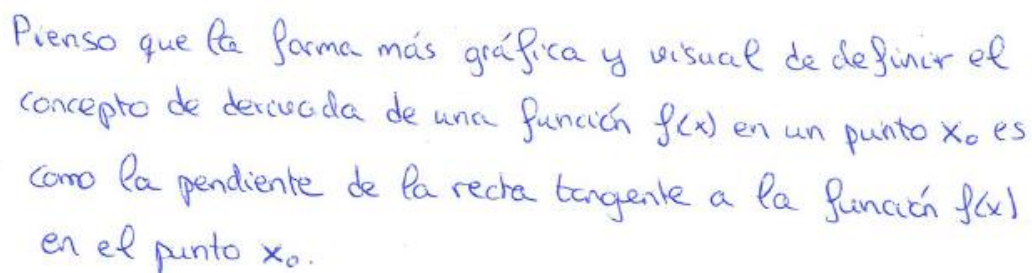 Pienso que la forma más gráfica y visual de definir el
concepto de derivada de una función f(x) en un punto x₀ es
como la pendiente de la recta tangente a la función f(x)
en el punto x₀.